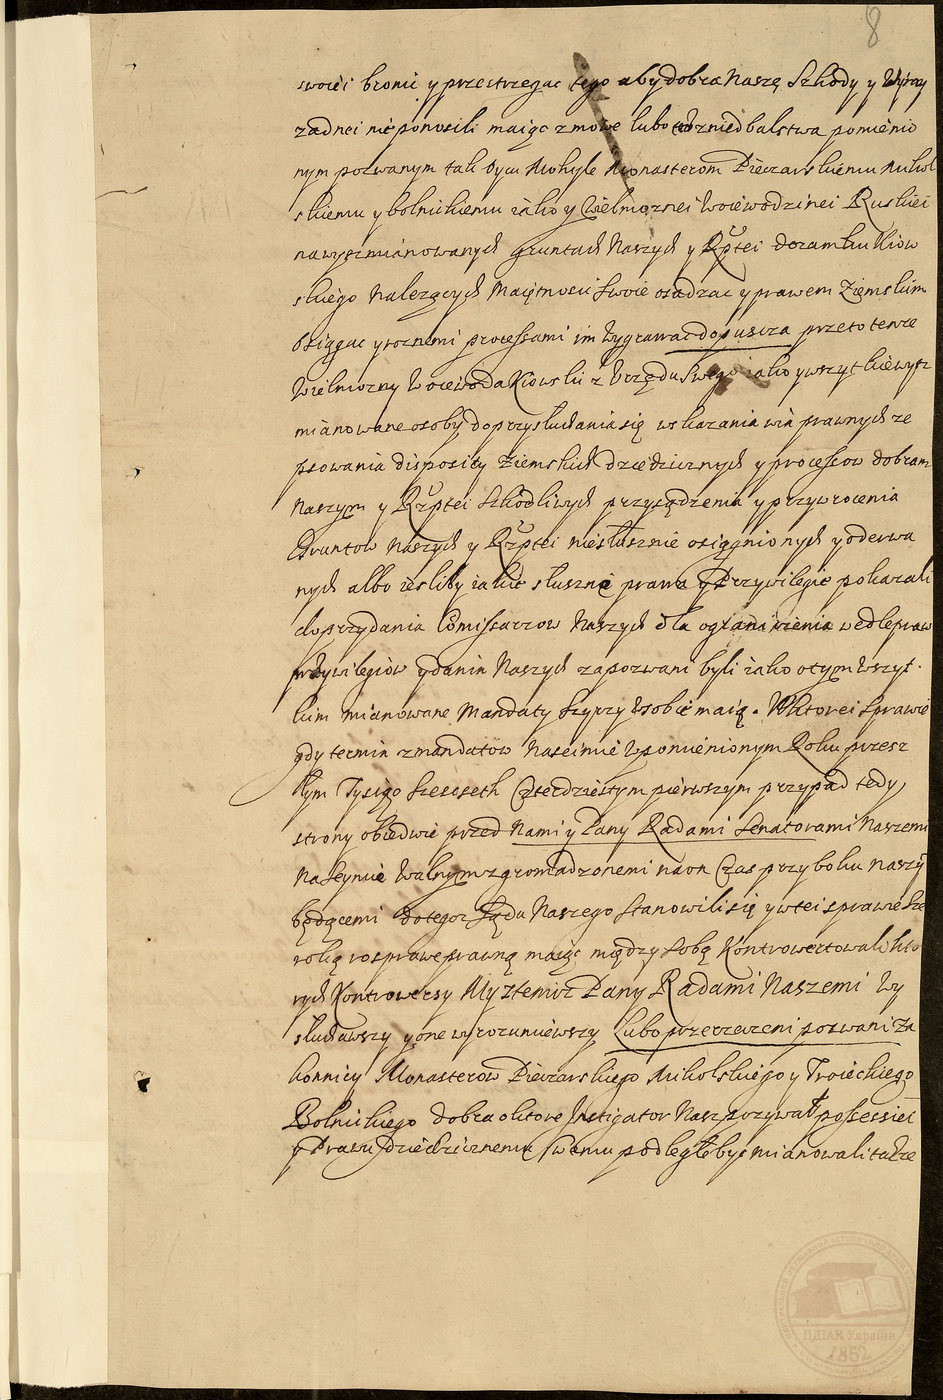 8
swoiei bronić y przestrzegac tego aby dobra Nasze Szkody y
zadnei nie ponosili maiąc zmowę lubo też z niedbalstwa pomienio
nym pozwanym tak Oycu Mohyle Monasterom Pieczarskiemu Mikol
skiemu y bolnickiemu iako y Wielmoznei Woiewodzinei Ruskiei
na wyszmianowanych gruntach Naszych y Rzptei do zamku Kiiow
skiego Nalezących Maiętnosci swoie osadzac y prawem Ziemskim
osiągac y roznemi processami im wygrawac dopuscza przeto tenze
Wielmozny Woiewoda Kiiowski z Urzędu Swego iako y wszytkie wysz
mianowane osoby do przysłuchania się wskazania win prawnych ze
psowania disposicy Ziemskich dziedzicznych y processow dobram
Naszym y Rzptei szkodliwych przysądzenia y przywrocenia
Gruntow Naszych y Rzptei niesłusznie osiągnionych y oderwa
nych albo iesliby iakie słuszne prawa y Przywilegie pokazali
do przydania Commissarzow Naszych dla ograniczenia wedle praw
przywilegiow y danin Naszych zapozwani byli iako o tym wszyt
kim mianowane Mandaty szyrzy w sobie maią. W ktorei sprawie
gdy termin z mandatow na seimie wpomienionym Roku przesz
łym Tysiąc Szescseth Czterdziestym pierwszym przypad tedy
strony obiedwie przed Nami y Pany Radami Senatorami Naszemi
na Seymie Walnym zgromadzonemi na on Czas przy boku naszym
będącemi do tegoz Sądu Naszego stanowili się y w tei sprawie sze
roką rosprawę prawną maiąc między sobą Kontrowertowali kto
rych Kontrowersy My z temiz Pany Radami Naszemi Wy
słuchawszy y one wyrozumiewszy lubo przerzeczeni pozwani Za
konnicy Monasterow Pieczarskiego Mikolskiego y Troieckiego
Bolnickiego dobra o ktore Instigator Nasz pozywał possessiei
y Prawu Dziedzicznemu swemu podległe byc mianowali takze
ЦДІАК України
1852